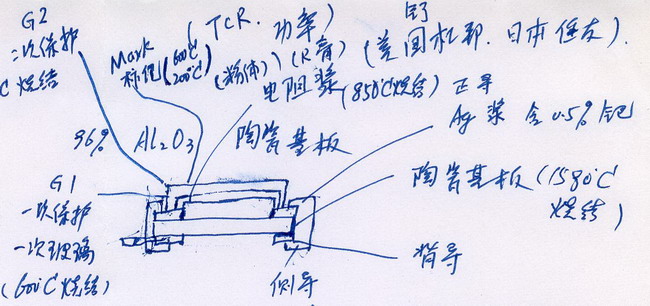 G2
二次保护
C烧结
Mark
标记(600℃
200℃)
(TCR. 功率)
(粉体)(R膏)
钌
(美国杜邦. 日本住友).
电阻浆(850℃烧结)
正导
Ag 浆 含0.5%钯
96% Al2O3 陶瓷基板
G1
一次保护
一次玻璃
(600℃烧结)
陶瓷基板(1580℃
烧结)
背导
侧导